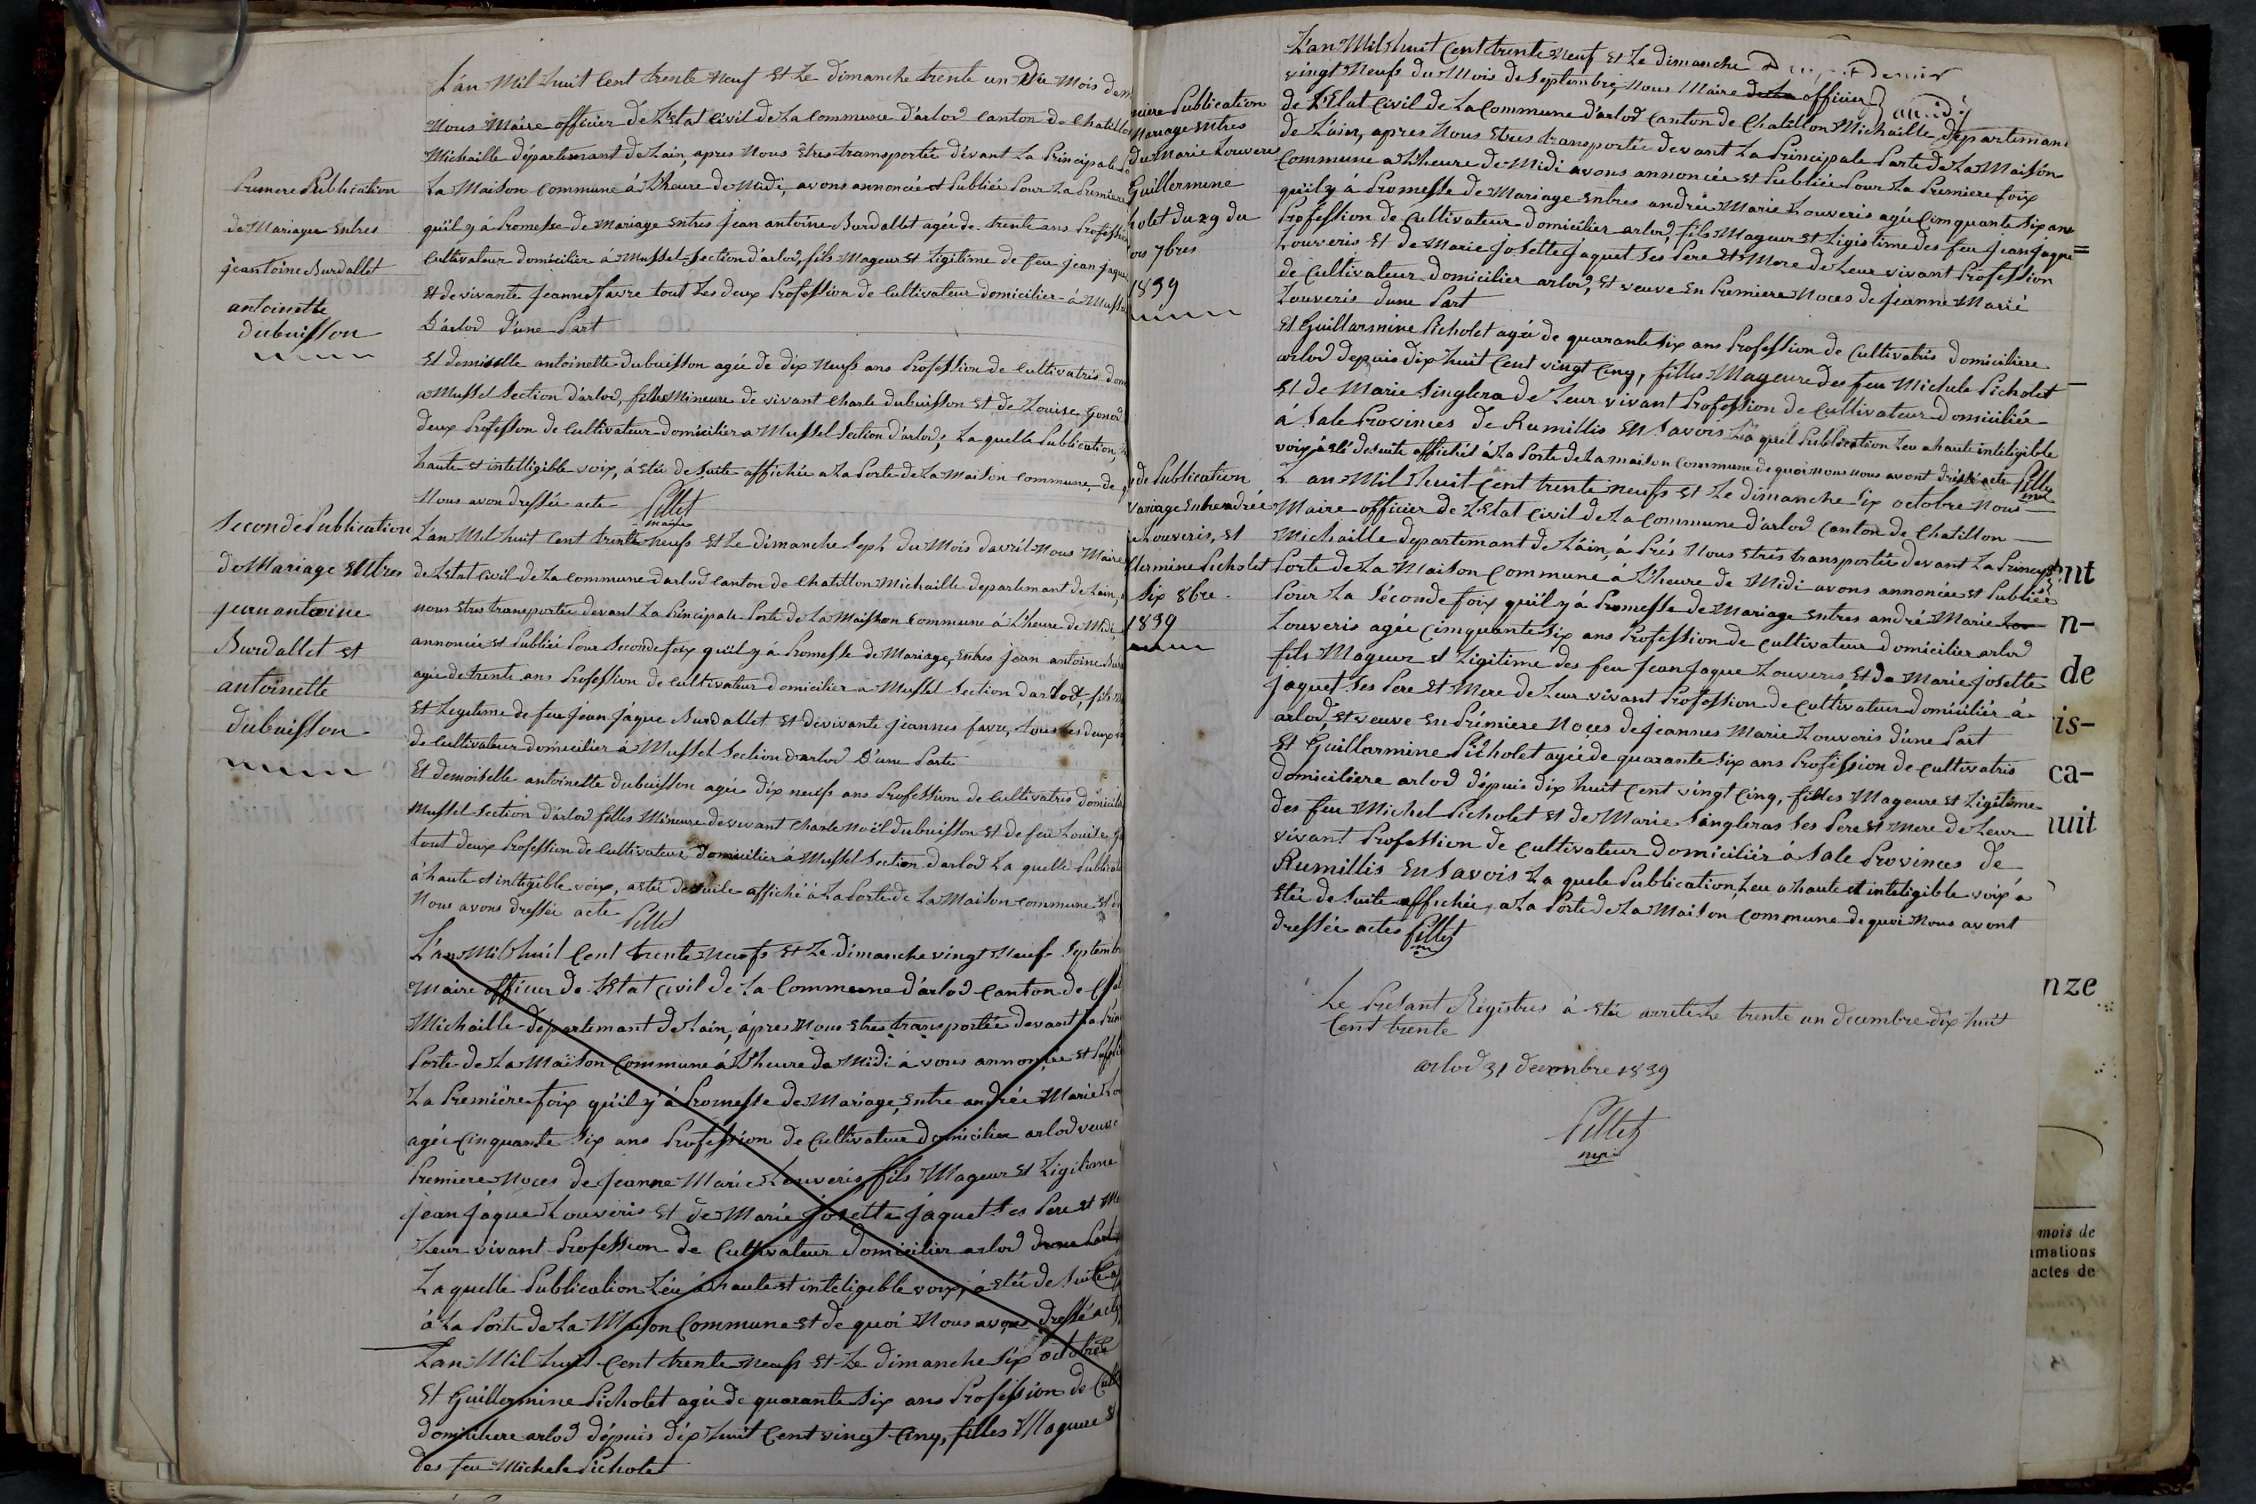 L'an Mil huit Cent trente neuf Et Le dimanche trente un Du Mois de
Nous Maire officier de L'Etat Civil de La Commune d'arlod Canton de Chatillon
Michaille départemant de Lain, apres Nous Êtres transportée dévant La Principale
Premere Publication
de Mariage Entres
jeantoine Burdallet
antoinette
dubuisson
La Maison Commune á L'heure de Midi, avons annoncée et Publiée Pour La Premiere
qu'il y á Promesse de Mariage Entres jean antoine Burdallet agée de trente ans Profession
Cultivateur domicilier á Mussel Section d'arlod, fils Mageur et Ligitime de feu jean jaque
Et de vivante jeanne favre tout Les deux Profession de Cultivateur domicilier á Mussel
D'arlod d'une Part
Et demiselle antoinette dubuisson agée de dix Neufs ans Profession de Cultivatris dom
a Mussel Section d'arlod, filles Mineure de vivant Charle dubuisson Et de Louise Gonod
deux Professon de Cultivateur domicilier a Mussel Section d'arlod, La quelle Publication,
haute et intelligible voix, á Etée de Suite affichée a La Porte de La Maison Commune, de
Nous avon dressée acte Pillet
maire
Seconde Publication
de Mariage Entres
jean antoine
Burdallet et
antoinette
dubuisson
L'an Mil huit Cent trente neufs Et Le dimanche Sept du Mois davril Nous Maire
de L'Etat Civil de La Commune darlod Canton de Chatillon Michaille departemant de Lain,
nous Etres transportée devant La Principale Porte de La Maison Commune á L'heure de Midi
annoncée et Publiée Pour Seconde foix qu'il y á Promesse de Mariage, Entres jean antoine Bur
agée de trente ans Profession de Cultivateur domicilier a Mussel Section d'arlod, fils
Et Legitime de feu jean jaque Burdallet Et de vivante jeannes favre, tous Les deux
de Cultivateur domicilier á Mussel Section d'arlod D'une Parte
Et demoiselle antoinette dubuisson agée dix neufs ans Profession de Cultivatris domicil
Mussel Section d'arlod filles Mineure de vivant Charle Noël dubuisson Et de feu Louise
tout deux Profession de Cultivateur Domicilier á Mussel Section d'arlod La quelle Publicat
á haute et inteligible voix, a etée de Suite affiché á La Porte de La Maison Commune Et de
Nous avons dressée acte Pillet
L'an Mil huit Cent trente Neufs Et Le dimanche vingt Neufs Septembr
Maire officier de L'Etat Civil de La Commune d'arlod Canton de Chat
Michaille departemant de Lain, ápres Nous Etres transportée devant La Prin
Porte de La Maison Commune á L'heure de Midi á vous annoncée et Publi
La Premiere foix qu'il y á Promesse de Mariage, Entre andrée Marie Lou
agée Cinquante Six ans Profession de Cultivateur Domicilier arlod veuve
Premiere Noces de jeanne Marie Louveris fils Mageur et Ligitime
jean jaque Louveris Et de Marie josette jaquet Ses Pere et Me
Leur vivant Profession de Cultivateur domicilier arlod dune Part
La quelle Publication Léu á haute et inteligible voix, á etée de Suite af
á La Porte de La Maison Commune et de quoi Nous avons dressé acte
Lan Mil huit Cent trente Neufs Et Le dimanche Six octobre
Et Guillermine Picholet agée de quarante Six ans Profession de Cult
domiciliere arlod dépuis dix huit Cent vingt Cinq, filles Mageure et
des feu Michele Picholet
miere Publication
Mariage Entres
du Marie Louveris
Guillermine
holet du 29 du
ois 7bres
1839
L'an Mil huit Cent trente Neufs et Le dimanche
vingt Neufs du Mois de Septembre, Nous Maire de La officier
a midi
de L'Etat Civil de La Commune d'arlod Canton de Chatillon Michaille, departemant
de Lain, apres Nous Etres transportée devant La Principale Porte de La Maison
Commune a L'heure de Midi avons annoncée et Publiée Pour La Premiere foix
qu'il y á Promesse de Mariage Entres andrée Marie Louveris agée Cinquante Six ans
Profession de Cultivateur domicilier arlod, fils Mageur et Ligistime des feu jean jaque
Louveris Et de Marie josette jaquet Ses Pere Et Mere de Leur vivant Profession
de Cultivateur domicilier arlod, Et veuve En Premiere Noces de jeanne Marie
Louveris dune Part
Et Guillarmine Picholet agée de quarante Six ans Profession de Cultivatris domiciliere
arlod depuis dix huit Cent vingt Cinq, filles Mageure des feu Michele Picholet
Et de Marie Singlera de Leur vivant Profession de Cultivateur domicilier
á Sale Provinces de Rumillis En Savois La quel Publication Leu a haute inteligible
voix á eté de suite affiché á La Porte de La maison Commune de quoi nous nous avont dréssé acte Pillet
de Publication
Mariage Entre andrée
Louveris, Et
llermine Picholet
Six 8bre
1839
L'an Mil huit Cent trente neufs et Le dimanche Six octobre Nous
Maire officier de L'Etat Civil de La Commune d'arlod Canton de Chatillon
Michaille departemant de Lain, á Prés Nous Etres transportée devant La Princip
Porte de La Maison Commune á L'heure de Midi avons annoncée et Publiée
Pour La Séconde foix quil y á Promesse de Mariage Entres andré Marie Lou
Louveris agée Cimquante Six ans Profession de Cultivateur domicilier arlod
fils Mageur et Ligitime des feu jean jaque Louveris, Et de Marie josette
jaquet Ses Pere Et Mere de Leur vivant Profession de Cultivateur domicilier á
arlod, Et veuve En Prémiere Noces de jeannes Marie Louveris d'une Part
Et Guillarmine Picholet agée de quarante Six ans Profession de Cultivatris
domiciliere arlod dépuis dix huit Cent vingt Cinq, filles Mageure et Ligitime
des feu Michel Picholet et de Marie Singleras Ses Pere et Mere de Leur
vivant Profession de Cultivateur domicilier á Sale Provinces de
Rumillis En Savois La quele Publication, Leu a haute et inteligible voix á
Etée de Suite affichée, a La Porte de La Maison Commune de quoi Nous avont
dressée actes Pillet
Le Présant Régistres á Etée arrete Le trente un decembre dix huit
Cent trente
arlod 31 decembre 1839
Pillet
ent
n-
de
ris-
ca-
huit
nze
mois de
amations
actes de